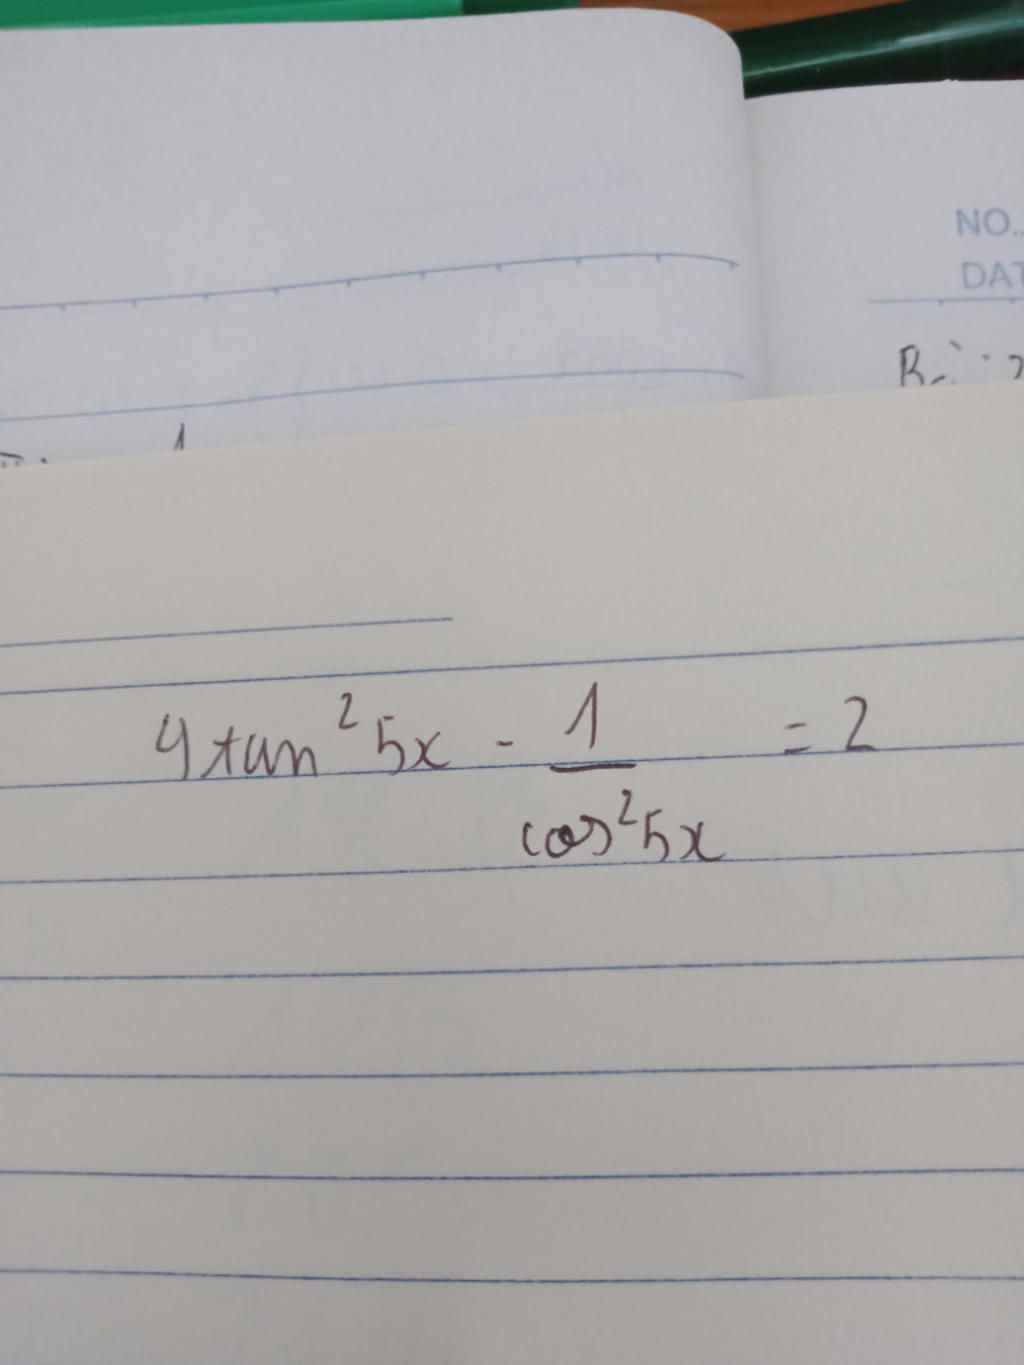 NO..
DAT
1
4tan²5x - 1/cos²5x = 2